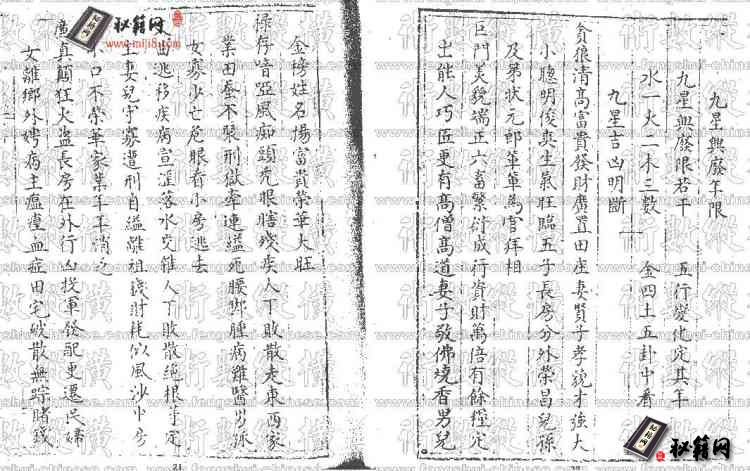 九星興廢年限
九星興廢限若干 五行變化定其年
水一火二木三數 金四土五卦中看
九星吉凶明斷
貪狼清高富貴發財廣置田庄妻賢子孝貌才強大
小聰明俊真生氣旺臨五子長房分外榮昌兒孫
及第狀元郎輩輩為官拜相
巨門美貌端正六畜繁衍成行資財萬倍有餘糧定
出能人巧匠更有高僧高道妻子敬佛燒香男兒
金榜姓名揚富貴榮華大旺
祿存喑啞風痴頭禿眼瞎殘疾人丁敗散走東西家
業田蚕不裝刑獄牽連縊死腰脚腫病難醫男孤
女寡少亡危眼看小房逃去
曲逃移疾病 落水交雜人丁敗散絕根
妻兒守寡遭刑自縊離祖 財耗 風沙中房
小口不榮華家業年年消
廉貞顛狂火盜長房在外行凶投軍發配更遷民婦
女離鄉外娉病主瘟 血症田宅破散無踪賭錢
秘籍网
www.miji8.com
秘籍网
横
數
術
www.fengshui-chinese.com